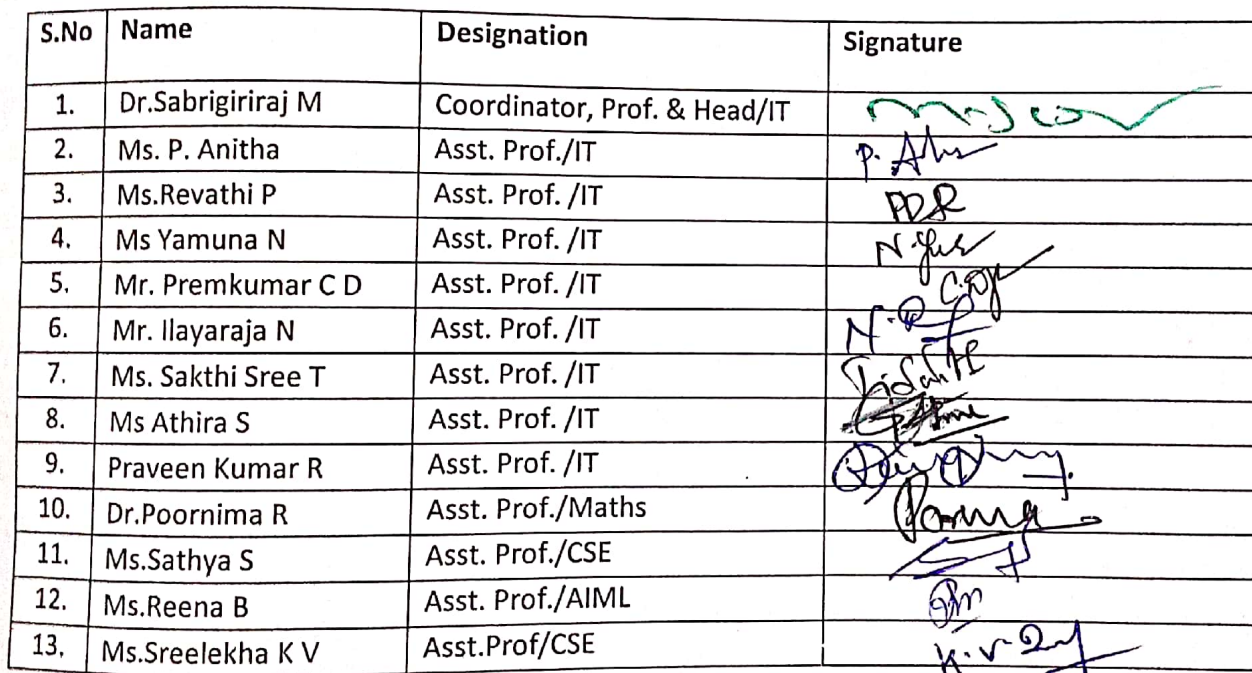 S.No Name Designation Signature
1. Dr.Sabrigiriraj M Coordinator, Prof. & Head/IT
2. Ms. P. Anitha Asst. Prof./IT
3. Ms.Revathi P Asst. Prof. /IT
4. Ms Yamuna N Asst. Prof. /IT
5. Mr. Premkumar C D Asst. Prof. /IT
6. Mr. Ilayaraja N Asst. Prof. /IT
7. Ms. Sakthi Sree T Asst. Prof. /IT
8. Ms Athira S Asst. Prof. /IT
9. Praveen Kumar R Asst. Prof. /IT
10. Dr.Poornima R Asst. Prof./Maths
11. Ms.Sathya S Asst. Prof./CSE
12. Ms.Reena B Asst. Prof./AIML
13. Ms.Sreelekha K V Asst.Prof/CSE